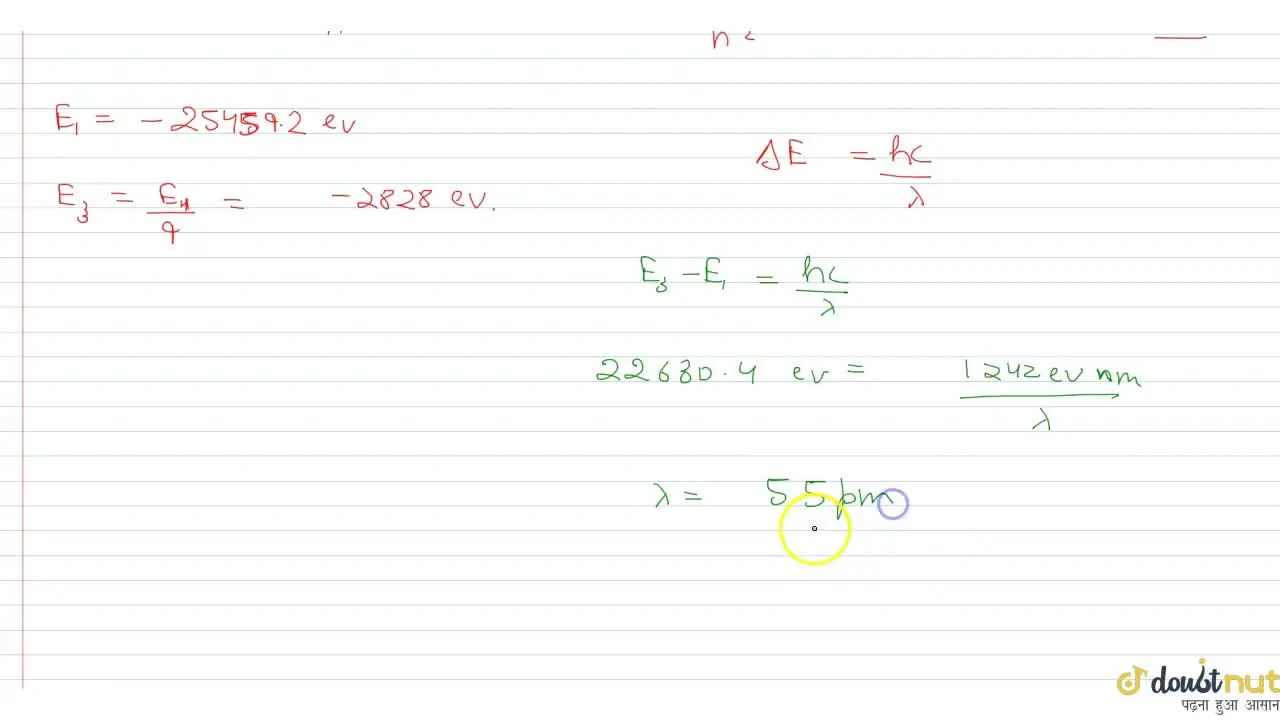 n²
E₁ = − 25459.2 ev
ΔE = hc/λ
E₃ = E₁/9 = − 2828 ev.
E₃ − E₁ = hc/λ
22630.4 ev = 1242 ev nm/λ
λ = 55 pm
doubtnut
पढ़ना हुआ आसान